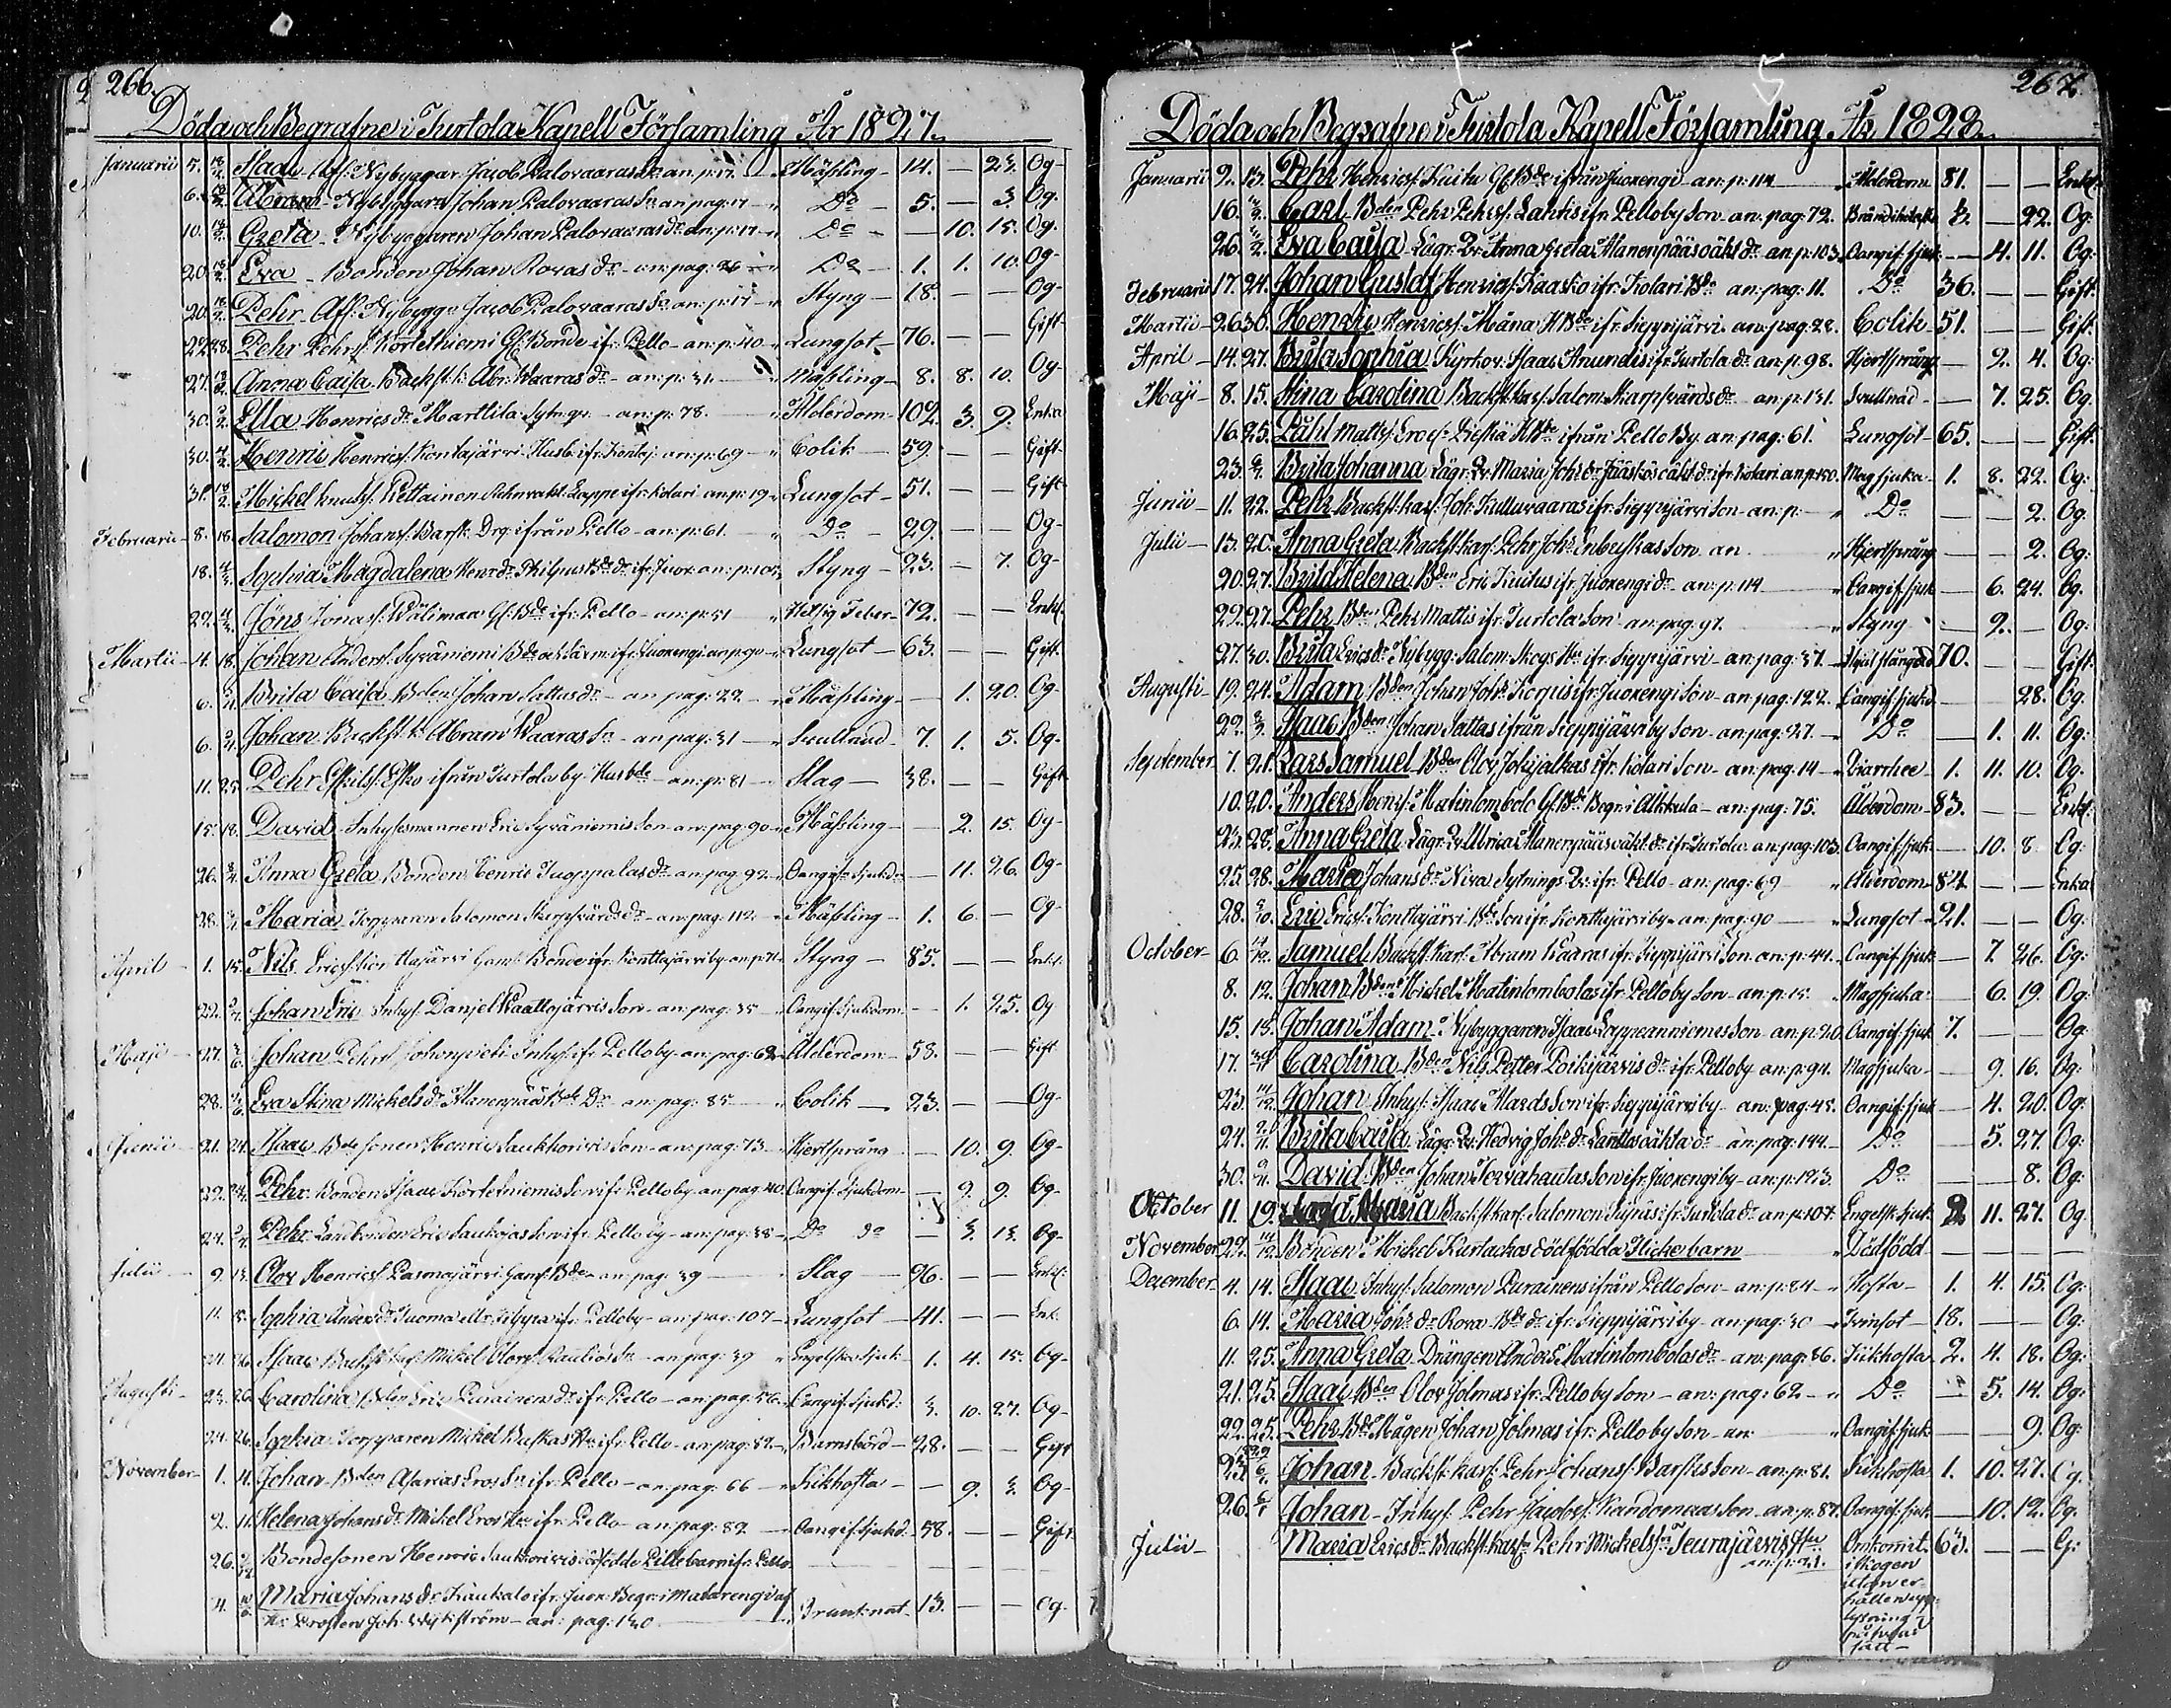 266.
Döda och Begrafne i Turtola Kapell Församling År 1827.
Januarii 5. 18/2. Isaac Afl. Nybyggar. Jacob Palovaaras Sn an. p. 17. Mäßling 14. — 23. Og
6. 18/2. Abram Nybyggarn Johan Palovaaras Sn an. pag. 17 Do 5. — 3. Og.
10. 18/2. Greta Nybyggaren Johan Palovaaras dr. an. p. 17 Do — 10. 15. Og.
20. 18/2. Eva Bonden Johan Rovas dr. an. pag. 26 Do 1. 1. 10. Og
20. 18/2. Pehr Afl. Nybygg. Jacob Palovaaras Sn an. p. 17 Styng 18. — — Og
22. 28. Pehr Pehrs. Körteniemi Gl. Bonde ifr. Pello an. p. 40 Lungsot 76. — — Gift
27. 18/2. Anna Caisa Backst. k. Abr. Waaras dr. an. p. 31 Mäßling 8. 8. 10. Og
30. Ella Henrics dr. Marttila Sytn. qv. an. p. 78. Ålderdom 102. 3. 9. Enka
30. Henric Henrics. Kontajärvi Husb. ifr. Kontaj. an. p. 69 Colik 59. — — Gift
31. 18/2. Mickel Knuts. Kettainen Lappe ifr. Kolari an. p. 19 Lungsot 51. — — Gift
Februarii 8. 18. Salomon Johans. Barsk Drg. ifrån Pello an. p. 61. Do 29. — — Og
18. Sophia Magdalena Henr. dr. Philpus Bde dr. ifr. Juox. an. p. 105 Styng 23. — 7. Og
22. Jöns Jonas. Wälimaa Gl. Bde ifr. Pello an. p. 51 Hetsig Feber 72. — — Enkl.
Martii 4. 18. Johan Anders. Syväniemi Bde ifr. Juoxengi an. p. 90 Lungsot 63. — — Gift
6. Brita Caisa Bden Johan Sattas dr. an. pag. 27 Mäßling — 1. 20. Og
6. Johan Backst. k. Abram Waaras Sn an pag. 31 Svullnad 7. 1. 5. Og.
11. 25. Pehr Eskils. Esko ifrån Turtola by Husbde an. p. 81 Slag 38. — — Gift
15. 18. David Inhysesmannen Eric Syväniemis Son an. pag. 90 Mäßling — 2. 15. Og
26. Anna Greta Bonden Henric Tuoppalas dr. an. pag. 92 Oangifn Sjukd. — 11. 26. Og
28. Maria Torpparen Salomon Skarpsvärds dr. an. pag. 112. Mäßling 1. 6. — Og
April 1. 15. Nils Erics. Konttajärvi Gaml. Bonde ifr. Konttajärvi by an. p. 71 Styng 85. — — Enkl.
22. Johan Eric Inhys. Daniel Kaattojärvis Son an. pag. 35 Oangif. Sjukdom — 1. 25. Og
Maji 27. Johan Pehrs. Johonpieti Inhys. ifr. Pelloby an. pag. 62 Ålderdom 58. — — Gift
28. Eva Stina Mickels dr. Alanenpää Bde Dr. an. pag. 85 Colik 23. — — Og
Junii 21. 24. Isaac Bde sonen Henric Saukkoriris Son an. pag. 73 Hjertsprång — 10. 9. Og
22. 24. Pehr Bonden Isaac Körteniemis Son ifr. Pelloby an. pag. 40. Oangif. Sjukdom — 9. 9. Og
24. Pehr Landbonden Eric Saukojas Son ifr. Pello by an. pag. 38 Do do — 3. 13. Og
Julii 9. 15. Olov Henrics. Pasmajärvi Gaml. Bde an. pag. 39 Slag 96. — — Enkl.
11. 15. Sophia Anders dr. Tuomaella ifr. Pelloby an. pag. 107 Lungsot 41. — — Enk.
21. 26. Isaac Backst. karl. Mickel Olovs. Raulios Sn an. pag. 39 Engelska Sjuk. 1. 4. 15. Og
Augusti 23. 26. Carolina Bden Eric Purainens dr. ifr. Pello an. pag. 56. Oangif. Sjukd. 3. 10. 27. Og
24. 26. Sophia Torpparen Mickel Buskas Hu ifr. Pello an. pag. 82. Barnsbörd 28. — — Gift
November 1. 11. Johan Bden Asarias Eros Sn ifr. Pello an. pag. 66 Kikhosta — 9. 3. Og
2. 11. Helena Johans dr. Mickel Eros Hu ifr. Pello an. pag. 82 Oangif. Sjukd. 58. — — Gift
26. Bondesonen Henric Saukkoriris dödfödde Pillebarn ifr. Pello
4. Maria Johans dr. Kaukalo ifr. Juox. Begr. i Matarengi af
Hr. Prosten Joh. Wykström an. pag. 130 13. — — Og
267.
Döda och Begrafne i Turtola Kapell Församling År 1828.
Januarii 9. 13. Pehr Henrics. Kuitu Gl. Bde ifrån Juoxengi an. p. 114 Ålderdom 81. — — Enkl.
16. Carl Bden Pehr Pehrs. Lahtis ifr. Pelloby Son an. pag. 72. — 22. Og
26. Eva Caisa Lägr. Qv. Anna Greta Alanenpääs oäkt dr. an. p. 103 Oangif. Sjuk. — 4. 11. Og.
Februarii 17. 24. Johan Gustaf Henrics. Kaasko ifr. Kolari Bde an. pag. 11. Do 36. — — Gift.
Martii 26. 30. Henric Henrics. Måna Bde ifr. Sieppijärvi an. pag. 28. Colik 51. — — Gift.
April 14. 27. Brita Sophia Kyrkov. Isaac Anundis ifr. Turtola dr. an. p. 98. Hjertsprång — 2. 4. Og.
Maji 8. 15. Stina Carolina Backst. karl. Salom. Skarpsvärds dr. an. p. 131. Svullnad — 7. 25. Og.
16. 25. Påhl Matts. Eroes. Pieskä Bde ifrån Pello By. an. pag. 61. Lungsot 65. — — Gift.
23. Brita Johanna Lägr. Qv. Maria Johs dr. Jääskös oäkt dr. ifr. Kolari an. p. 150. Magsjuka 1. 8. 22. Og.
Junii 11. 22. Pehr Backst. karl. Joh. Kulluvaaras ifr. Sieppijärvi Son an. p. Do — — 2. Og
Julii 13. 20. Anna Greta Backst. karl. Pehr Johs. Enbuskas Son. an Hjertsprång — — 2. Og.
20. 27. Brita Helena Bden Eric Kuitus ifr. Juoxengi dr. an. p. 114 Oangif. Sjuk. — 6. 24. Og.
22. 27. Pehr Bden Pehr Mattis ifr. Turtola Son an. pag. 97. Styng — 2. — Og.
27. 30. Brita Erics dr. Nybygg. Salom. Skogs Hu ifr. Sieppijärvi an. pag. 37. 70. — — Gift.
Augusti 19. 24. Adam Bden Johan Johs. Korpus ifr. Juoxengi Son an. pag. 122. Oangif. Sjukd. 28. Og.
22. Isaac Bden Johan Sattas ifrån Sieppijärvi by Son an. pag. 27. Do — 1. 11. Og.
September 7. 21. Lars Samuel Bden Olov Jokijalkas ifr. Kolari Son an. pag. 14 Diarrhee 1. 11. 10. Og.
10. 20. Anders Henrs. Matintombolo Gl. Bde Begr. i Alkkula an. pag. 75. Ålderdom 83. — — Enkl.
23. 28. Anna Greta Lägr. Qv. Ulrica Alanenpääs oäkt. dr. ifr. Turtola an. pag. 103. Oangif. Sjuk. — 10. 8. Og.
25. 28. Marta Johans dr. Niva Sytnings Qv. ifr. Pello an. pag. 69 Ålderdom 84 — — Enka
28. Eric Erics. Konttajärvi Bde Son ifr. Konttajärvi by an. pag. 90 Lungsot 21. — — Og.
October 6. Samuel Backst. karl. Abram Waaras ifr. Sieppijärvi Son an. p. 44. Oangif. Sjuk. — 7. 26. Og.
8. 12. Johan Bden Mickel Matintombolas ifr. Pelloby Son an. p. 15. Magsjuka — 6. 19. Og.
15. 15. Johan Adam Nybyggaren Isaac Lappeanniemes Son an. p. 20. Oangif. Sjuk. 7. — — Og.
17. Carolina Bden Nils Petter Poikijärvis dr. ifr. Pelloby an. p. 94. Magsjuka — 9. 16. Og.
23. Johan Inhys. Isaac Alards Son ifr. Sieppijärvi by an. pag. 45. Oangif. Sjuk. — 4. 20. Og.
24. Brita Caisa Lägr. Qv. Hedvig Johs. dr. Lanttos oäkta dr. an. pag. 144. Do — 5. 27. Og.
30. David Bden Johan Torvahautas Son ifr. Juoxengiby an. p. 123. Do — — 8. Og.
October 11. 19. Maria Backst. karl. Salomon ifr. Turtola dr. an. p. 107. Engelsk. Sjuk. 2 11. 27. Og.
November 22. Bonden Mickel Kurtackos dödfödda Flickebarn Dödfödd — — —
December 4. 14. Isaac Inhys. Salomon Purainens ifrån Pello Son an. p. 84 Hosta 1. 4. 15. Og.
6. 14. Maria Johs. dr. Rova Bde dr. ifr. Sieppijärvi by an. pag. 30 Tvinsot 18. — — Og.
11. 25. Anna Greta Drängen Anders Matintombolas dr. an. pag. 86. Kikhosta 2. 4. 18. Og.
21. 25. Isaac Bden Olov Jolmas ifr. Pelloby Son an. pag. 62 Do — 5. 14. Og.
22. 25. Pehr Bde Mågen Johan Jolmas ifr. Pelloby Son an. Oangif. Sjuk. 9. Og.
1829
23. Johan Backst. karl. Pehr Johans. Barsks Son an. p. 81. Kikhosta 1. 10. 27. Og.
26. Johan Inhys. Pehr Jacobs. Kandomaas Son an. p. 87. Oangif. Sjuk. — 10. 12. Og.
Julii Maria Erics dr. Backst. karls Pehr Mickelss. Teurajärvis Hu Omkommit 63. — — G.
an. p. 23. i skogen
utan er-
hållen upp-
lysning
på hvad
sätt